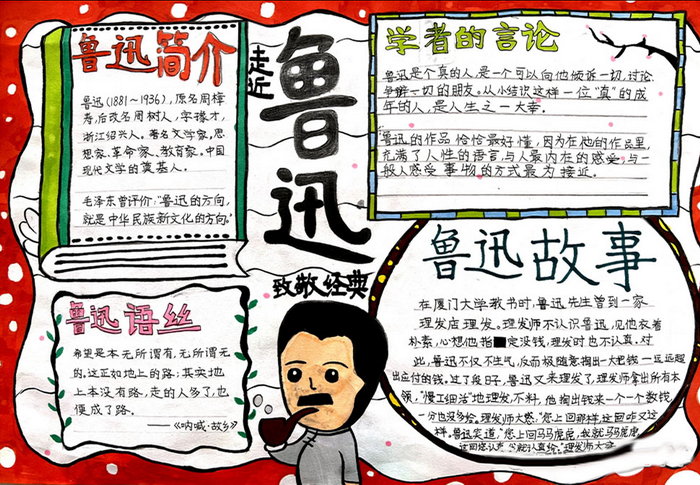 鲁迅简介
鲁迅(1881~1936),原名周樟
寿,后改名周树人,字豫才,
浙江绍兴人。著名文学家、思
想家、革命家、教育家。中国
现代文学的奠基人。
毛泽东曾评价:"鲁迅的方向,
就是中华民族新文化的方向。"
走近
鲁迅
致敬经典
学者的言论
鲁迅是个真的人,是一个可以向他倾诉一切,讨论
争辩一切的朋友。从小结识这样一位"真"的成
年的人,是人生之一大幸。
鲁迅的作品恰恰最好懂,因为在他的作品里,
充满了人性的语言,与人最内在的感受,与一
般人感受事物的方式最为接近。
鲁迅语丝
希望是本无所谓有,无所谓无
的,这正如地上的路;其实地
上本没有路,走的人多了,也
便成了路.
——《呐喊·故乡》
鲁迅故事
在厦门大学教书时,鲁迅先生曾到一家
理发店理发。理发师不认识鲁迅,见他衣着
朴素,心想他指定没钱,理发时也不认真。对
此,鲁迅不仅不生气,反而极随意掏出一大把钱一旦远超
出应付的钱。过了段日子,鲁迅又来理发了,理发师拿出所有本
领,"慢工细活"地理发,不料,他掏出钱来一个一个数钱,
一分也没多给。理发师大惑:"您上回那样,这回咋又这
样。鲁迅笑道,"您上回马马虎虎,我就马马虎虎,
这回您认真,我就认真给。"理发师大